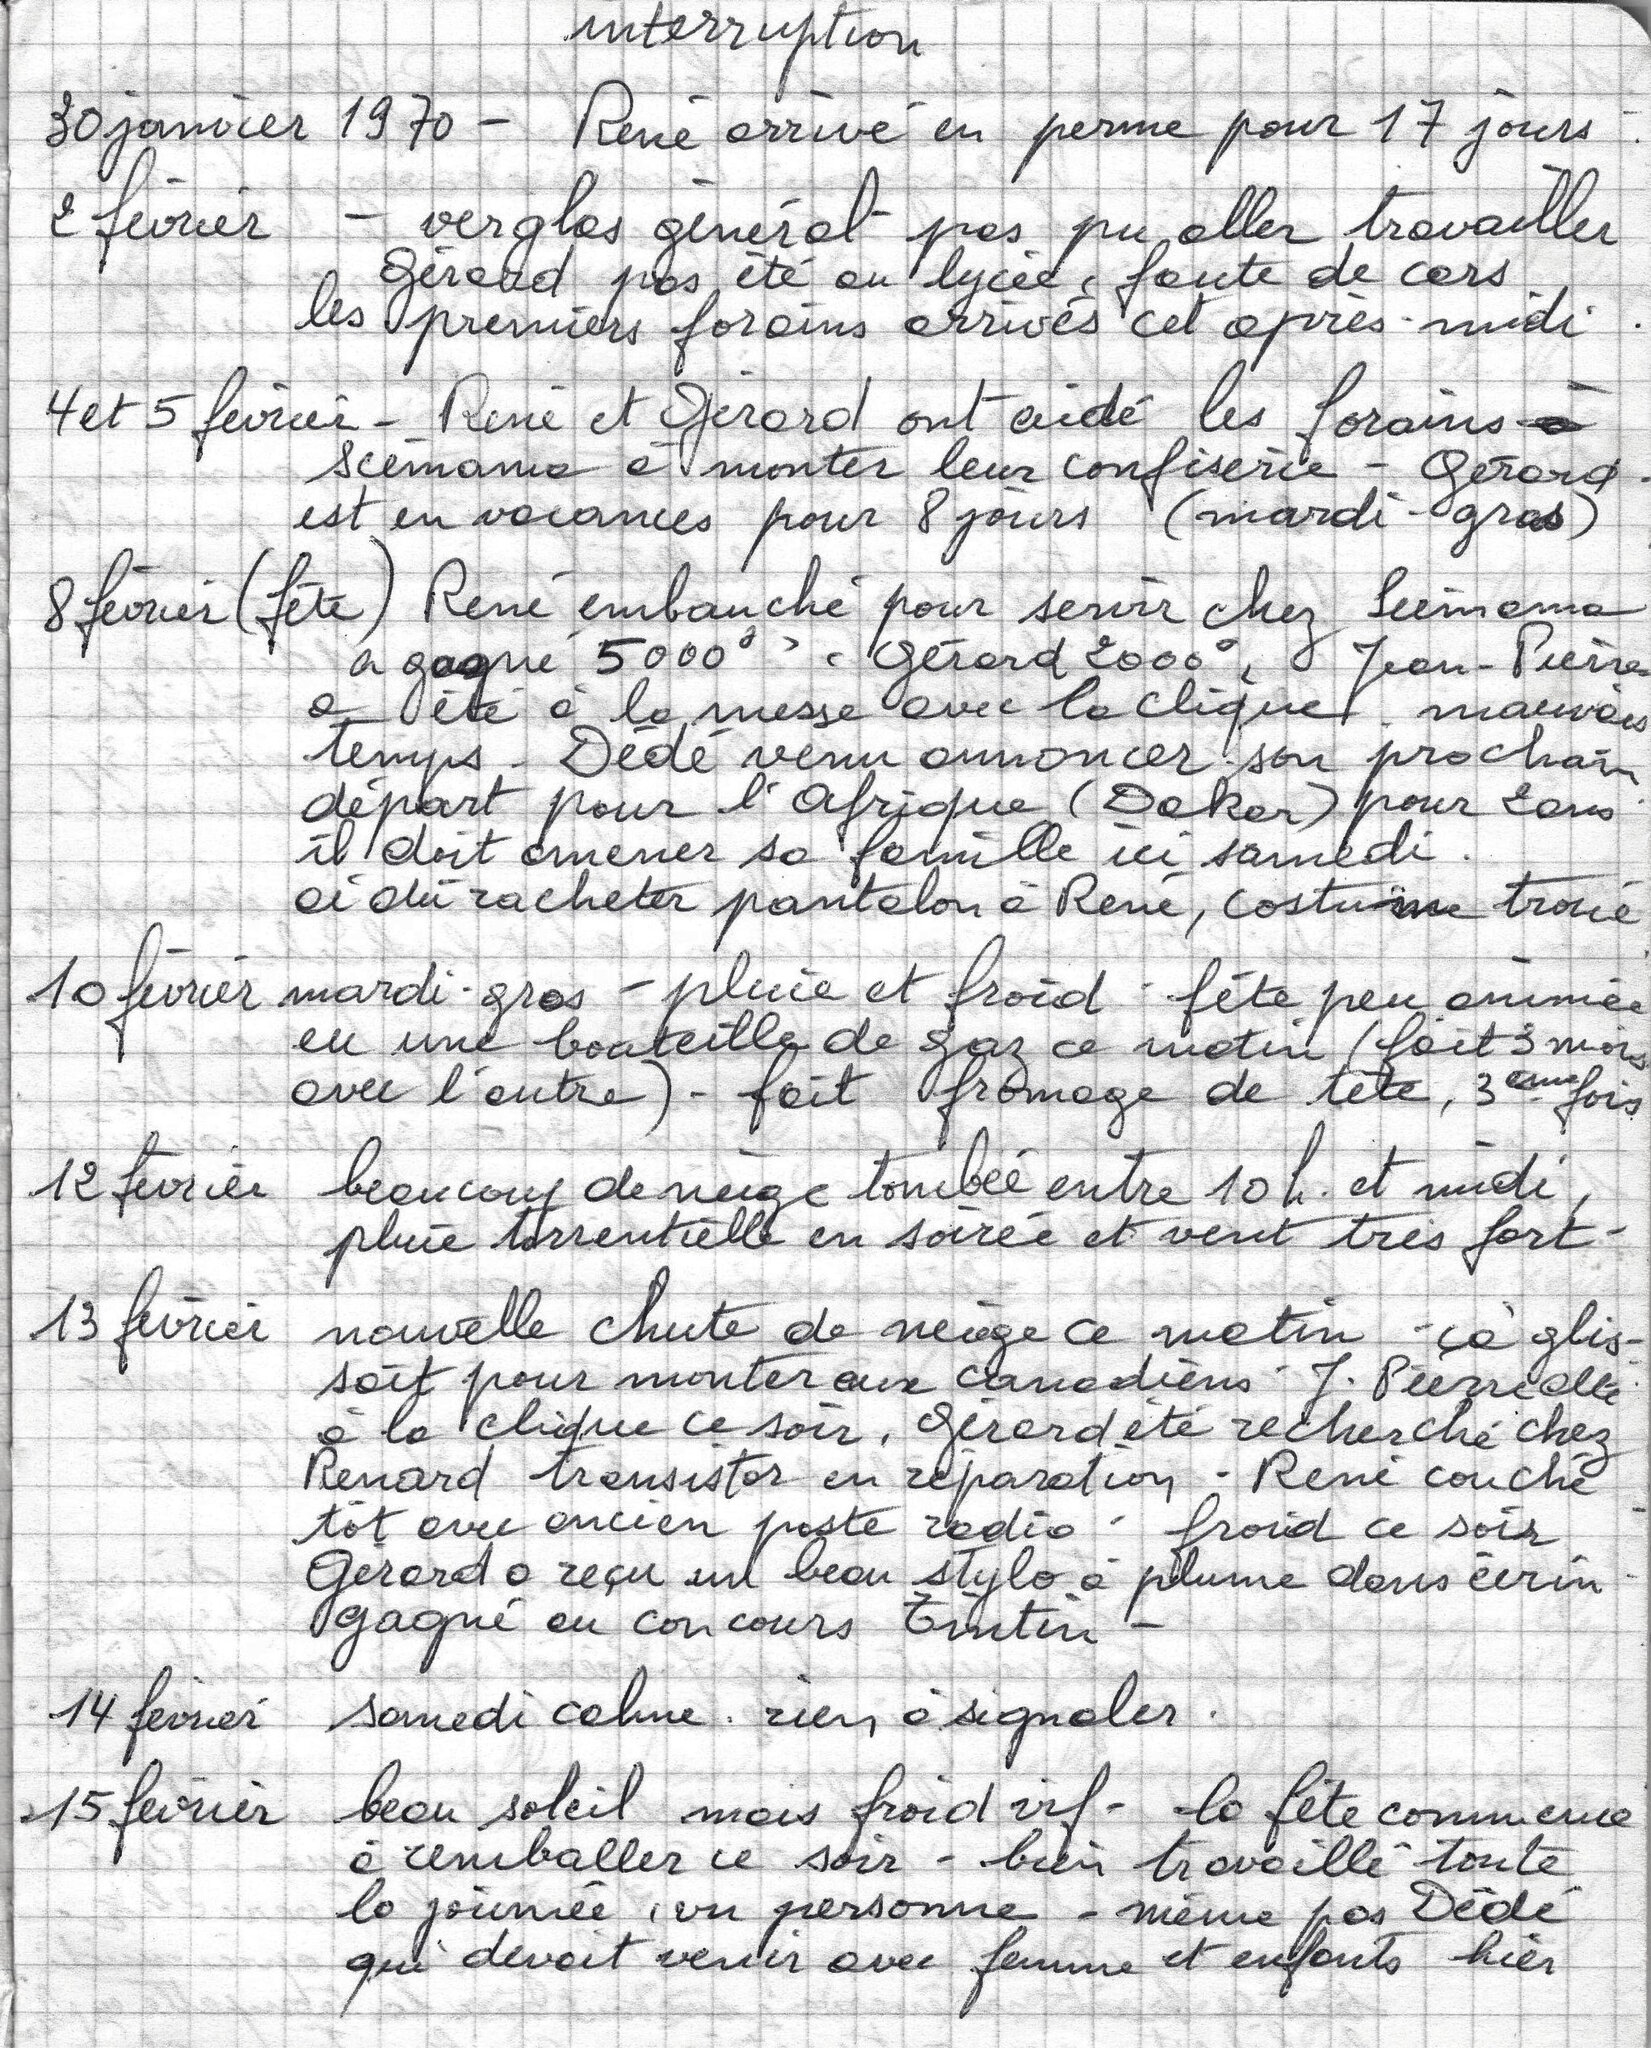 interruption
30 janvier 1970 - René arrivé en perme pour 17 jours.
2 février - verglas général - pas pu aller travailler
Gérard pas été au lycée, faute de cars
les premiers forains arrivés cet après-midi.
4 et 5 février - René et Gérard ont aidé les forains
Scemama à monter leur confiserie - Gérard
est en vacances pour 8 jours (mardi-gras)
8 février (fête) René embauché pour servir chez Scemama
a gagné 5000°, Gérard 2000°, Jean-Pierre
a été à la messe avec la clique. mauvais
temps - Dédé venu annoncer son prochain
départ pour l'Afrique (Dakar) pour 2 ans
il doit amener sa famille ici samedi.
ai dû racheter pantalon à René, costume troué
10 février mardi-gras - pluie et froid - fête peu animée
eu une bouteille de gaz ce matin (fait 3 mois
avec l'autre) - fait fromage de tête, 3ème fois
12 février beaucoup de neige tombée entre 10 h. et midi,
pluie torrentielle en soirée et vent très fort -
13 février nouvelle chute de neige ce matin - çà glis-
sait pour monter aux canadiens - J. Pierre allé
à la clique ce soir, Gérard été recherché chez
Renard transistor en réparation - René couché
tôt avec ancien poste radio - froid ce soir
Gérard a reçu un beau stylo à plume dans écrin -
gagné au concours Tintin -
14 février samedi calme. rien à signaler.
15 février beau soleil mais froid vif - la fête commence
à remballer ce soir - bien travaillé toute
la journée, vu personne - même pas Dédé
qui devait venir avec femme et enfants hier